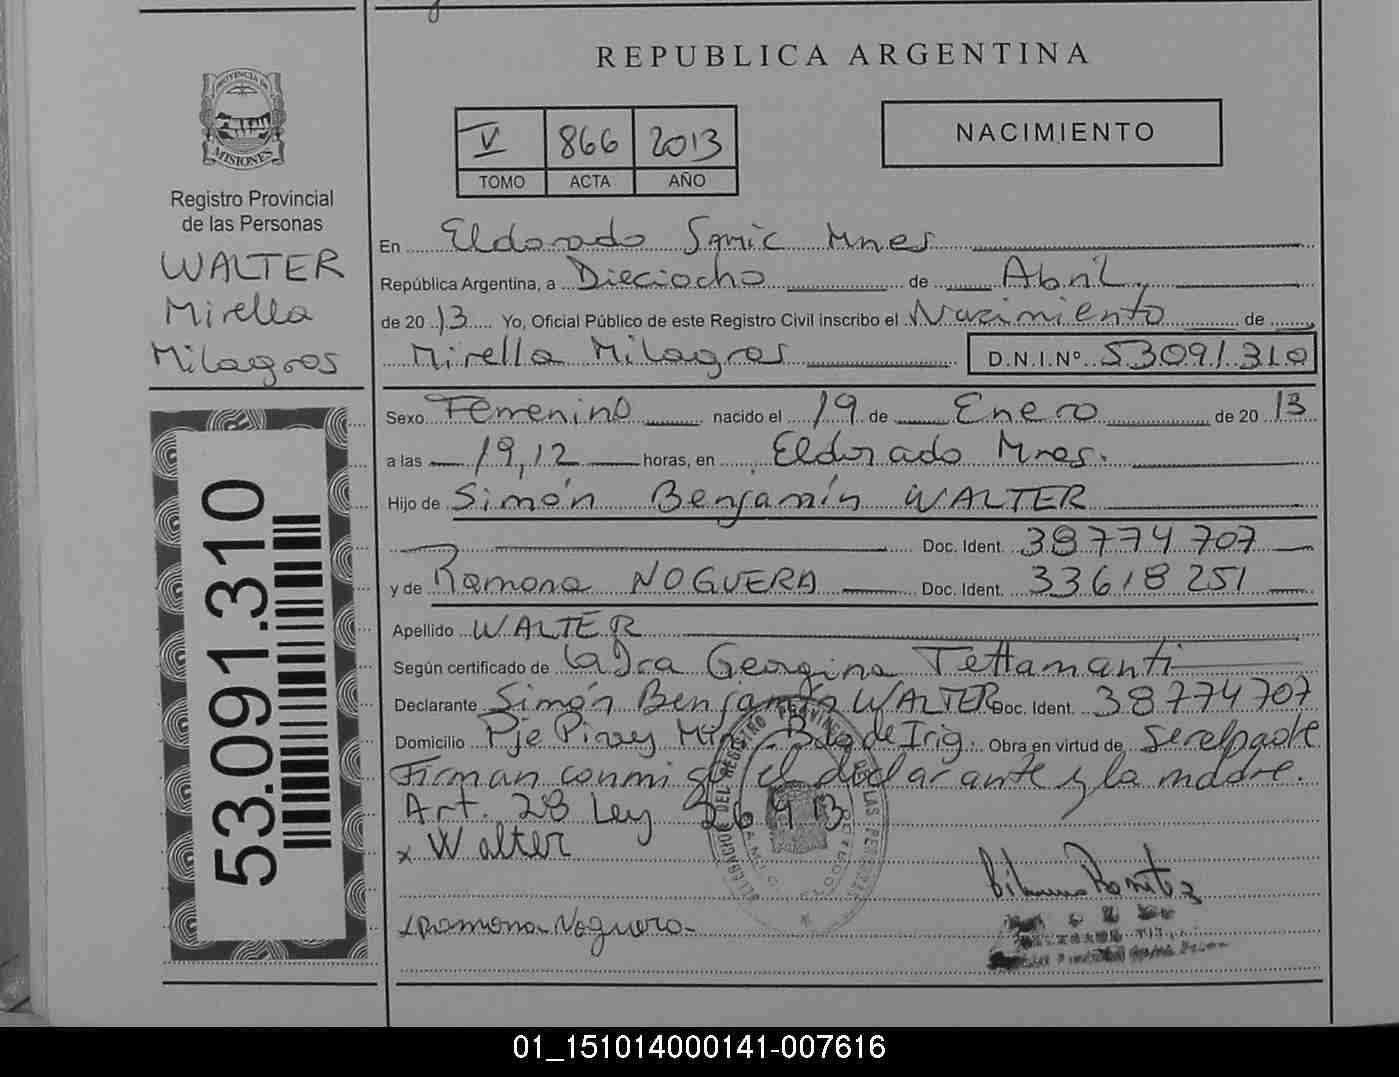 REPUBLICA ARGENTINA
PROVINCIA DE
MISIONES
Registro Provincial
de las Personas
WALTER
Mirella
Milagros
53.091.310
V 866 2013
TOMO ACTA AÑO
NACIMIENTO
En Eldorado Samic Mnes
República Argentina, a Dieciocho de Abril,
de 20 13 Yo, Oficial Público de este Registro Civil inscribo el Nacimiento de
Mirella Milagros D.N.I.Nº 53091310
Sexo Femenino nacido el 19 de Enero de 20 13
a las 19,12 horas, en Eldorado Mnes.
Hijo de Simón Benjamín WALTER
Doc. Ident. 38774707
y de Ramona NOGUERA Doc. Ident. 33618251
Apellido WALTER
Según certificado de la Dra Georgina Tettamanti
Declarante Simón Benjamín WALTER Doc. Ident. 38774707
Domicilio Pje de Irig. Obra en virtud de
Firman conmigo el declarante y la madre.
Art. 28 Ley 26413
x Walter
Benitez
Ramona Noguera
01_151014000141-007616